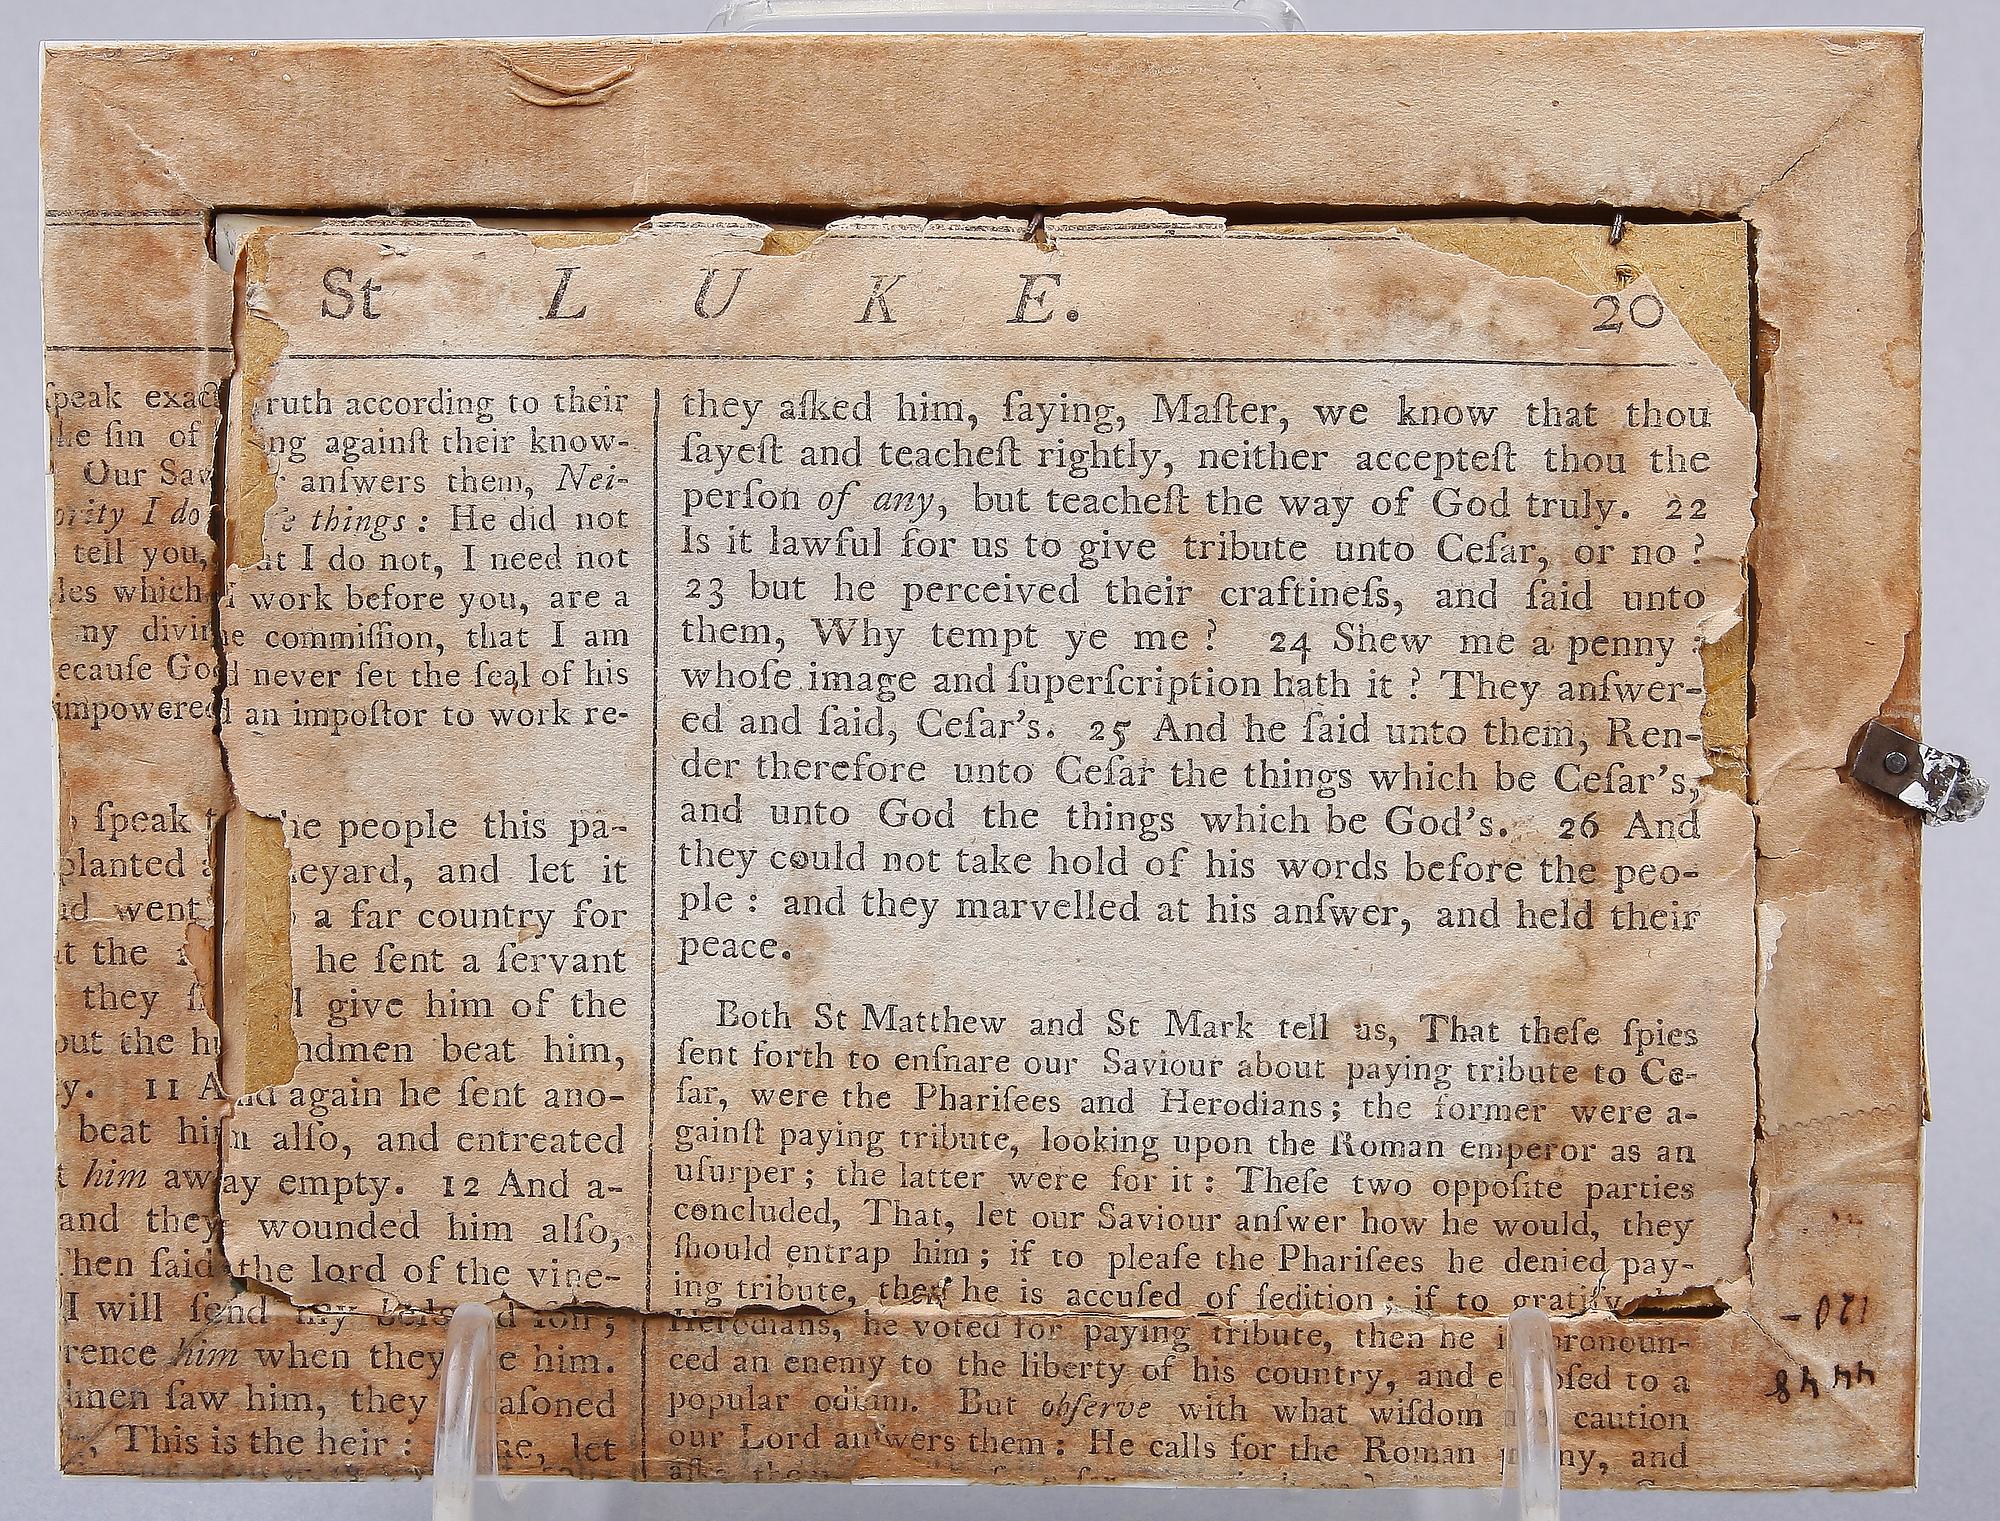 St L U K E. 20
speak exact truth according to their
the ſin of ing againſt their know-
Our Sav r anſwers them, Nei-
ority I do ſe things: He did not
tell you, at I do not, I need not
les which I work before you, are a
my divine commiſſion, that I am
ecauſe God never ſet the ſeal of his
impowered an impoſtor to work re-
ſpeak the people this pa-
planted eyard, and let it
went a far country for
t the he ſent a ſervant
they give him of the
out the ndmen beat him,
y. 11 And again he ſent ano-
beat him alſo, and entreated
him away empty. 12 And a-
and they wounded him alſo,
hen ſaid the lord of the vine-
I will ſend my ſon;
rence him when they e him.
men ſaw him, they eaſoned
This is the heir: let
they aſked him, ſaying, Maſter, we know that thou
ſayeſt and teacheſt rightly, neither accepteſt thou the
perſon of any, but teacheſt the way of God truly. 22
Is it lawful for us to give tribute unto Ceſar, or no?
23 but he perceived their craftineſs, and ſaid unto
them, Why tempt ye me? 24 Shew me a penny:
whoſe image and ſuperſcription hath it? They anſwer-
ed and ſaid, Ceſar's. 25 And he ſaid unto them, Ren-
der therefore unto Ceſar the things which be Ceſar's,
and unto God the things which be God's. 26 And
they could not take hold of his words before the peo-
ple: and they marvelled at his anſwer, and held their
peace.
Both St Matthew and St Mark tell us, That theſe ſpies
ſent forth to enſnare our Saviour about paying tribute to Ce-
ſar, were the Phariſees and Herodians; the former were a-
gainſt paying tribute, looking upon the Roman emperor as an
uſurper; the latter were for it: Theſe two oppoſite parties
concluded, That, let our Saviour anſwer how he would, they
ſhould entrap him; if to pleaſe the Phariſees he denied pay-
ing tribute, then he is accuſed of ſedition; if to gratify the
Herodians, he voted for paying tribute, then he is pronoun-
ced an enemy to the liberty of his country, and expoſed to a
popular odium. But obſerve with what wiſdom caution
our Lord anſwers them: He calls for the Roman penny, and
aſks them
120-
4448